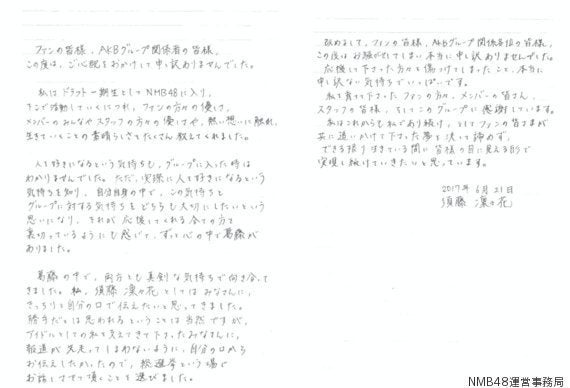 ファンの皆様、AKBグループ関係者の皆様、
この度は、ご心配をおかけして申し訳ありませんでした。
私はドラフト一期生としてNMB48に入り、
そこで活動していくにつれ、ファンの方々の優しさ、
メンバーのみんなやスタッフの方々の優しさや、熱い想いに触れ、
生きていくことの素晴らしさをたくさん教えてくれました。
人を好きになるという気持ちも、グループに入った時は
わかりませんでした。ただ、実際に人を好きになるという
気持ちを知り、自分自身の中で、この気持ちと
グループに対する気持ちをどちらも大切にしたいという
思いになり、それが応援してくれる全ての方を
裏切っているようにも感じて、ずっと心の中で葛藤が
ありました。
葛藤の中で、両方とも真剣な気持ちで向き合って
きました。私、須藤凜々花としてはみなさんに、
きっちりと自分の口で伝えたいと思ってきました。
勝手だとは思われるということは当然ですが、
アイドルとしての私を支えてきて下さったみなさんに、
報道が先走ってしまわないように、自分の口から
お伝えしたかったので、総選挙という場で
お話しさせて頂くことを選びました。
改めまして、ファンの皆様、AKBグループ関係各位の皆様、
この度はお騒がせしてしまい本当に申し訳ありませんでした。
応援して下さった方々を傷つけてしまったこと、本当に
申し訳ない気持ちでいっぱいです。
私を育てて下さったファンの方々、メンバーの皆さん、
スタッフの皆様、そしてこのグループに感謝しています。
私はこれからも私であり続け、そしてファンの皆さまが
共に追いかけて下さった夢を決して諦めず、
できる限り生きている間に皆様の目に見える形で
実現し続けていきたいと思っています。
2017年6月21日
須藤凜々花
NMB48運営事務局